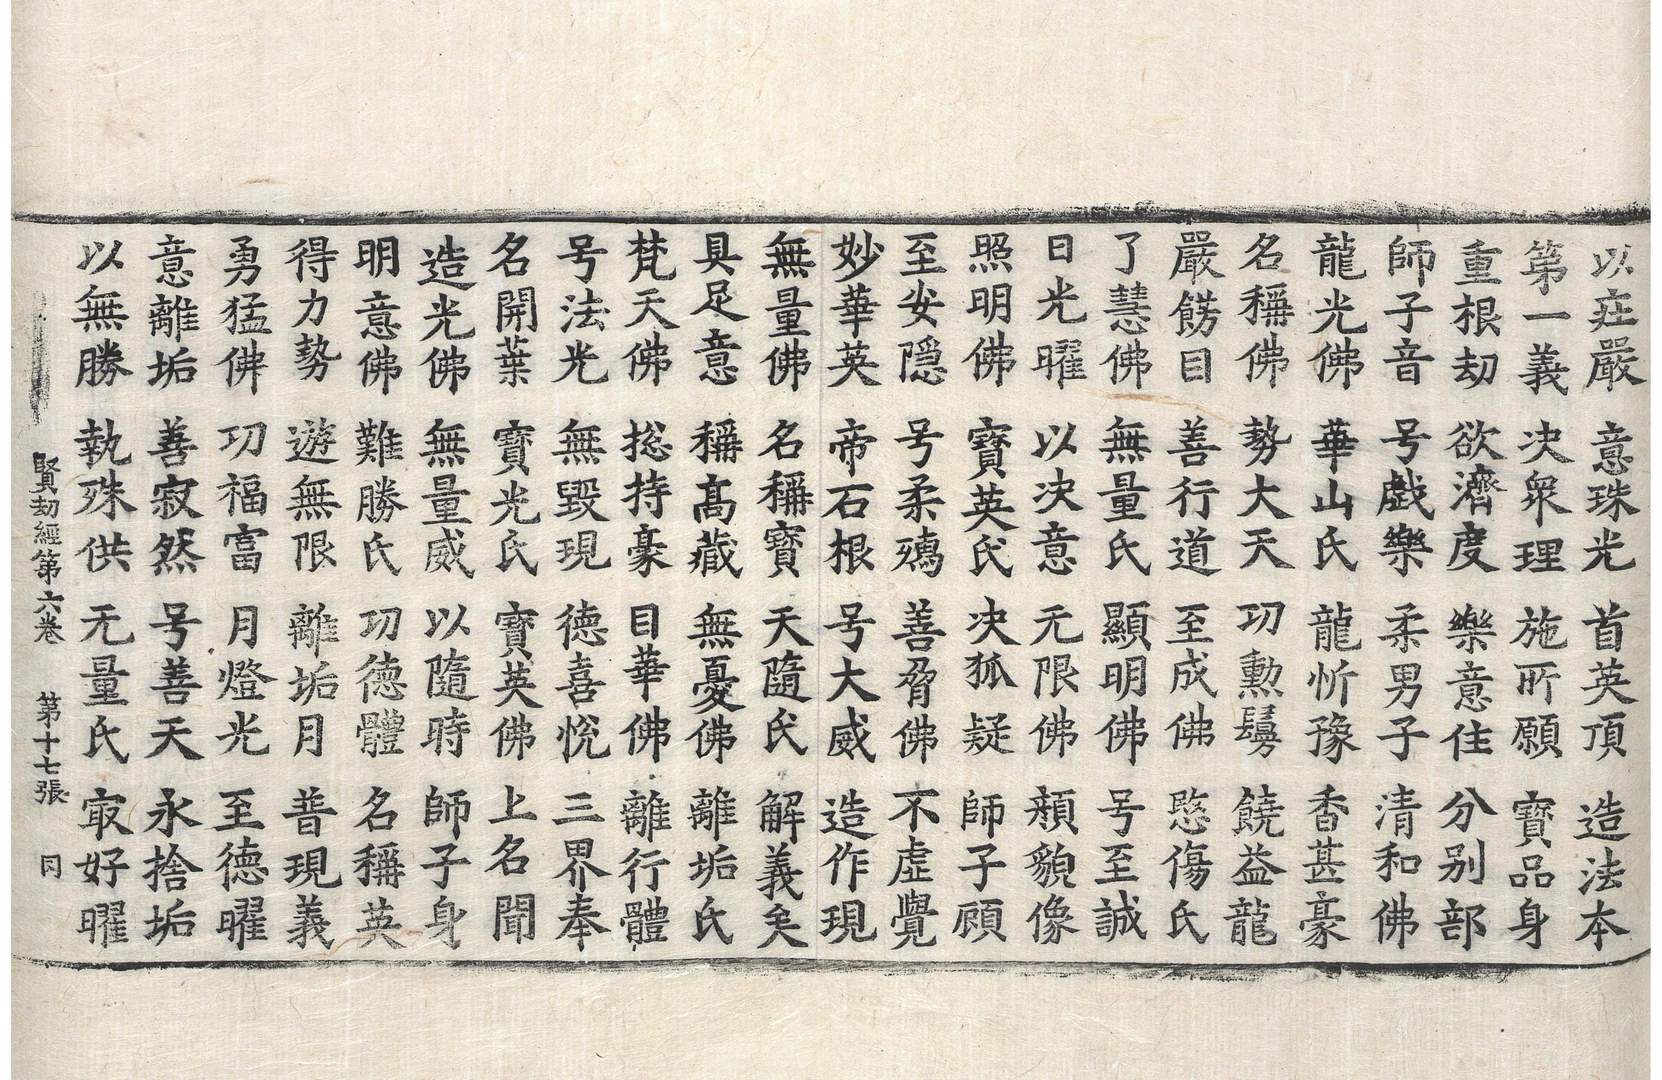 以庄嚴 意珠光 首英頂 造法本
第一義 决衆理 施所願 寶品身
重根劫 欲濟度 樂意住 分别部
師子音 号戯樂 柔男子 清和佛
龍光佛 華山氏 龍忻豫 香甚豪
名稱佛 勢大天 功勲鬘 饒益龍
嚴餝目 善行道 至成佛 愍傷氏
了慧佛 無量氏 顯明佛 号至誠
日光曜 以决意 无限佛 頬貌像
照明佛 寶英氏 决狐疑 師子頋
至安隠 号柔濡 善脅佛 不虚覺
妙華英 帝石根 号大威 造作現
無量佛 名稱寶 天隨氏 解義矣
具足意 稱髙藏 無憂佛 離垢氏
梵天佛 捴持豪 目華佛 離行體
号法光 無毀現 德喜恱 三界奉
名開葉 寶光氏 寶英佛 上名聞
造光佛 無量威 以隨時 師子身
明意佛 難勝氏 功德體 名稱英
得力勢 遊無限 離垢月 普現義
勇猛佛 功福富 月燈光 至德曜
意離垢 善寂然 号善天 永捨垢
以無勝 執殊供 无量氏 㝡好曜
賢劫經第六卷 第十七張 同